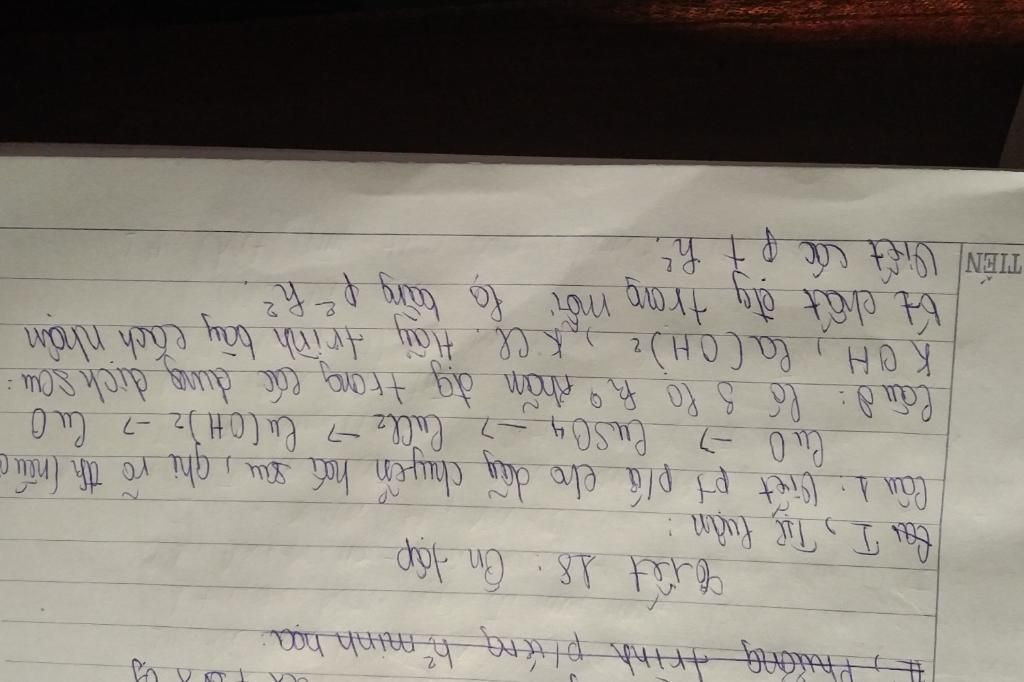 II, Phương trình p/ứng h² minh họa:
Tiết 18: Ôn tập
I, Tự luận:
Câu 1: Viết pt p/ứ cho dãy chuyển hoá sau, ghi rõ đk (nếu c
CuO → CuSO4 → CuCl2 → Cu(OH)2 → CuO
Câu 2: Có 3 lọ k° nhãn đựg trong các dung dịch sau:
KOH, Ca(OH)2, KCl. Hãy trình bày cách nhận
bt chất đựg trong mỗi lọ bằng p² h²
Viết các pt h².
TIẾN